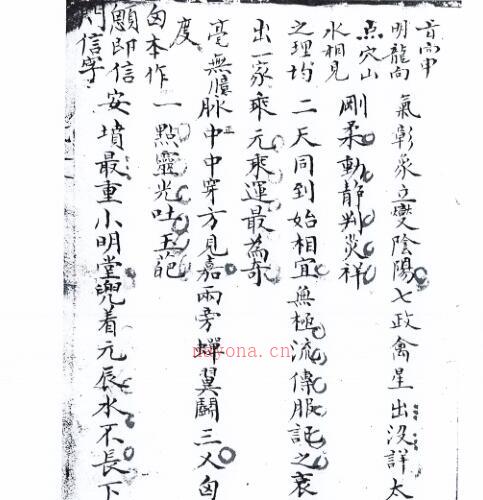 明龍向
点穴山
水相見
之理均
出一家
毫無臆
度
匈本作
顖即信
門信字
氣彰象立變陰陽七政禽星出沒詳太
剛柔動静判災祥
二天同到始相宜無極流傳服託之哀
乘元乘運最為奇
脉中中穿方見嘉兩旁蟬翼關三乂匈
一點靈光吐玉葩
安墳最重小明堂兜着元辰水不長下
nayona.cn